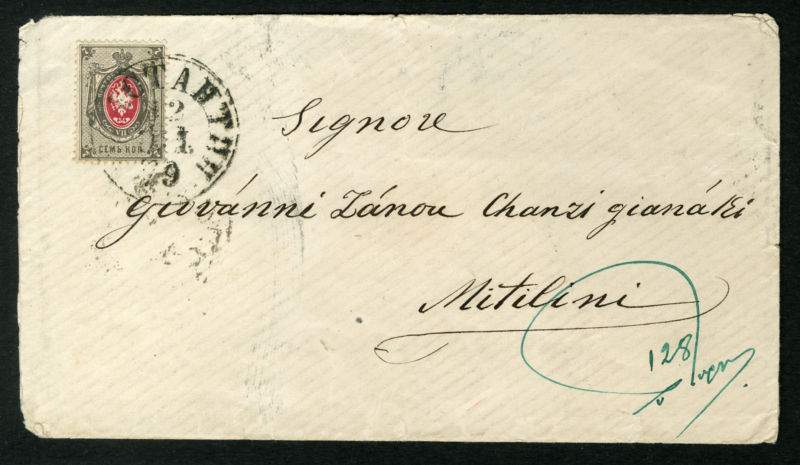 СЕМЬ КОП.
СТАНТИН
2
79
Signore
Giovánni Zánou Chanzi gianáki
Mitilini
128